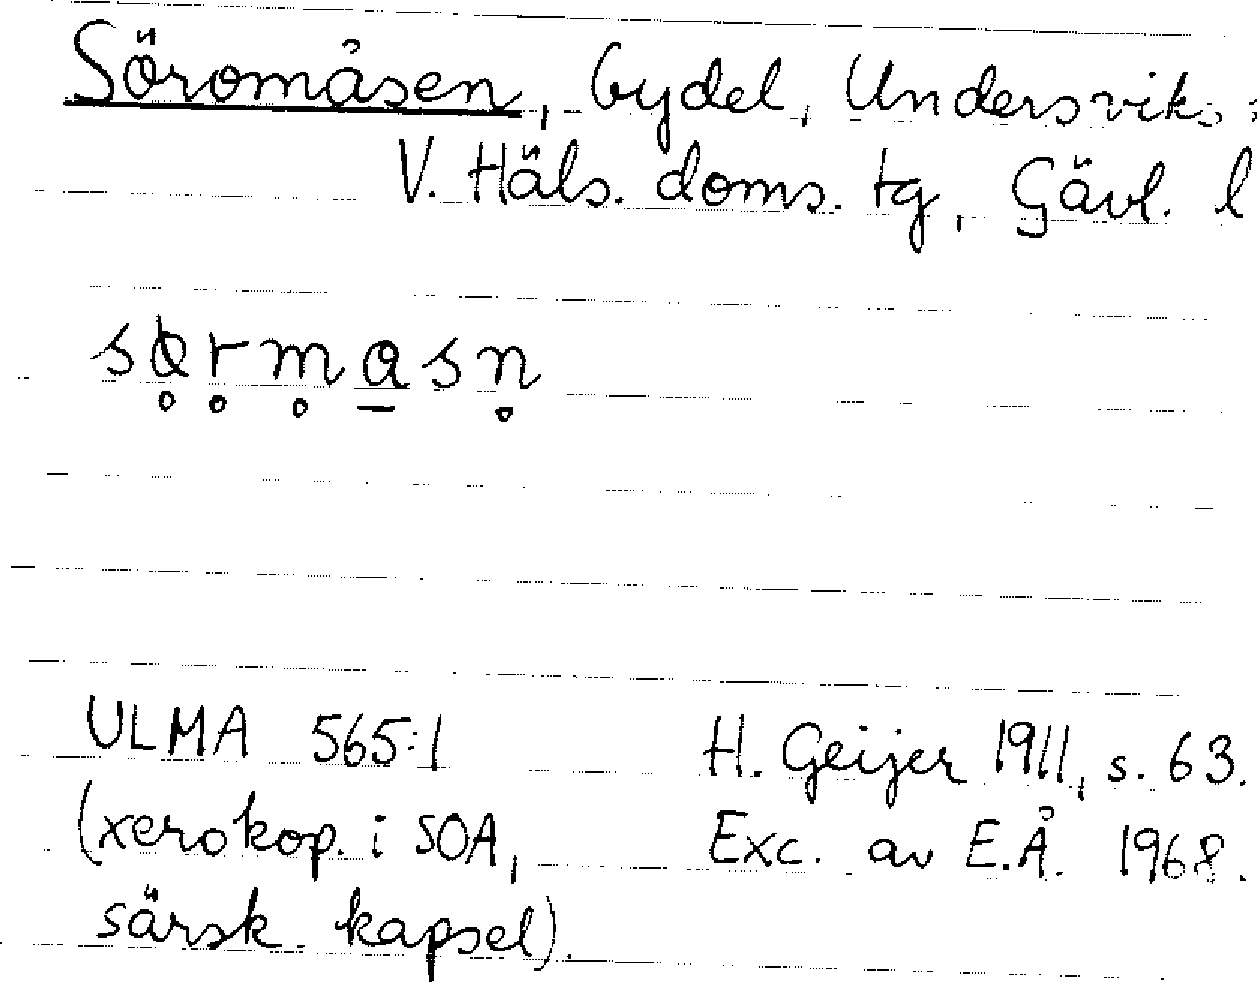 Söromåsen, bydel, Undersviks s
V. Häls. doms. tg, Gävl. l
ULMA 565:1 H. Geijer 1911, s. 63.
(xerokop. i SOA, Exc. av E.Å. 1968.
särsk. kapsel).